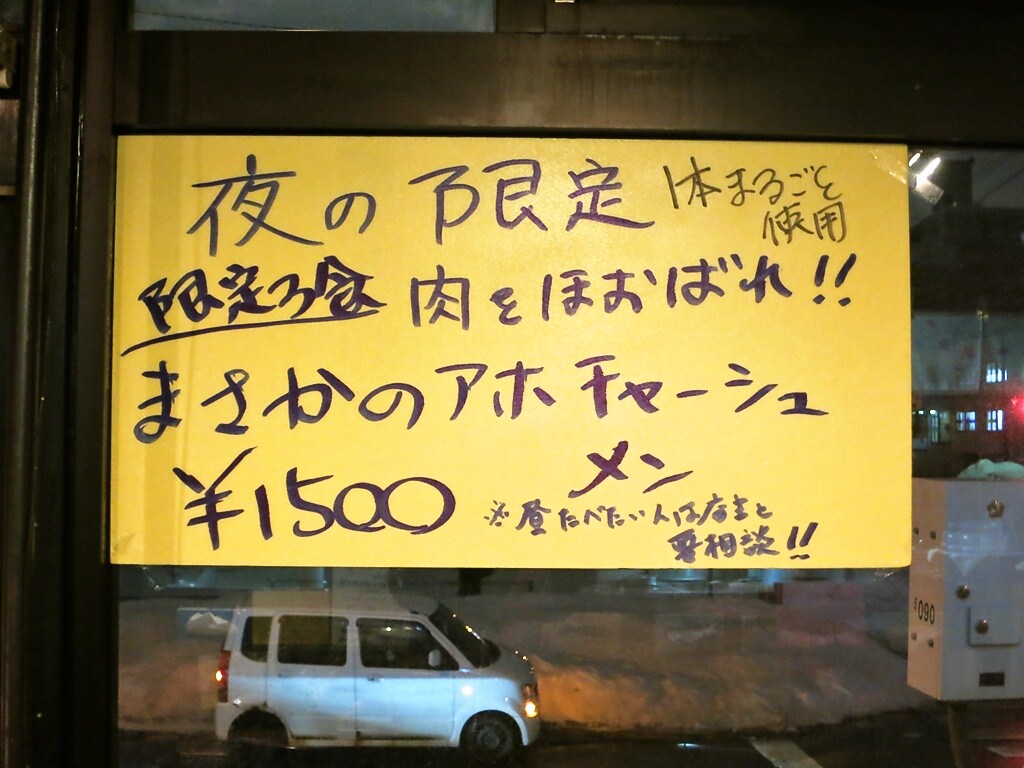 夜の限定 1本まるごと
使用
限定3食 肉をほおばれ!!
まさかのアホチャーシュー
メン
¥1500 ※昼たべたい人は店主と
要相談!!
5090